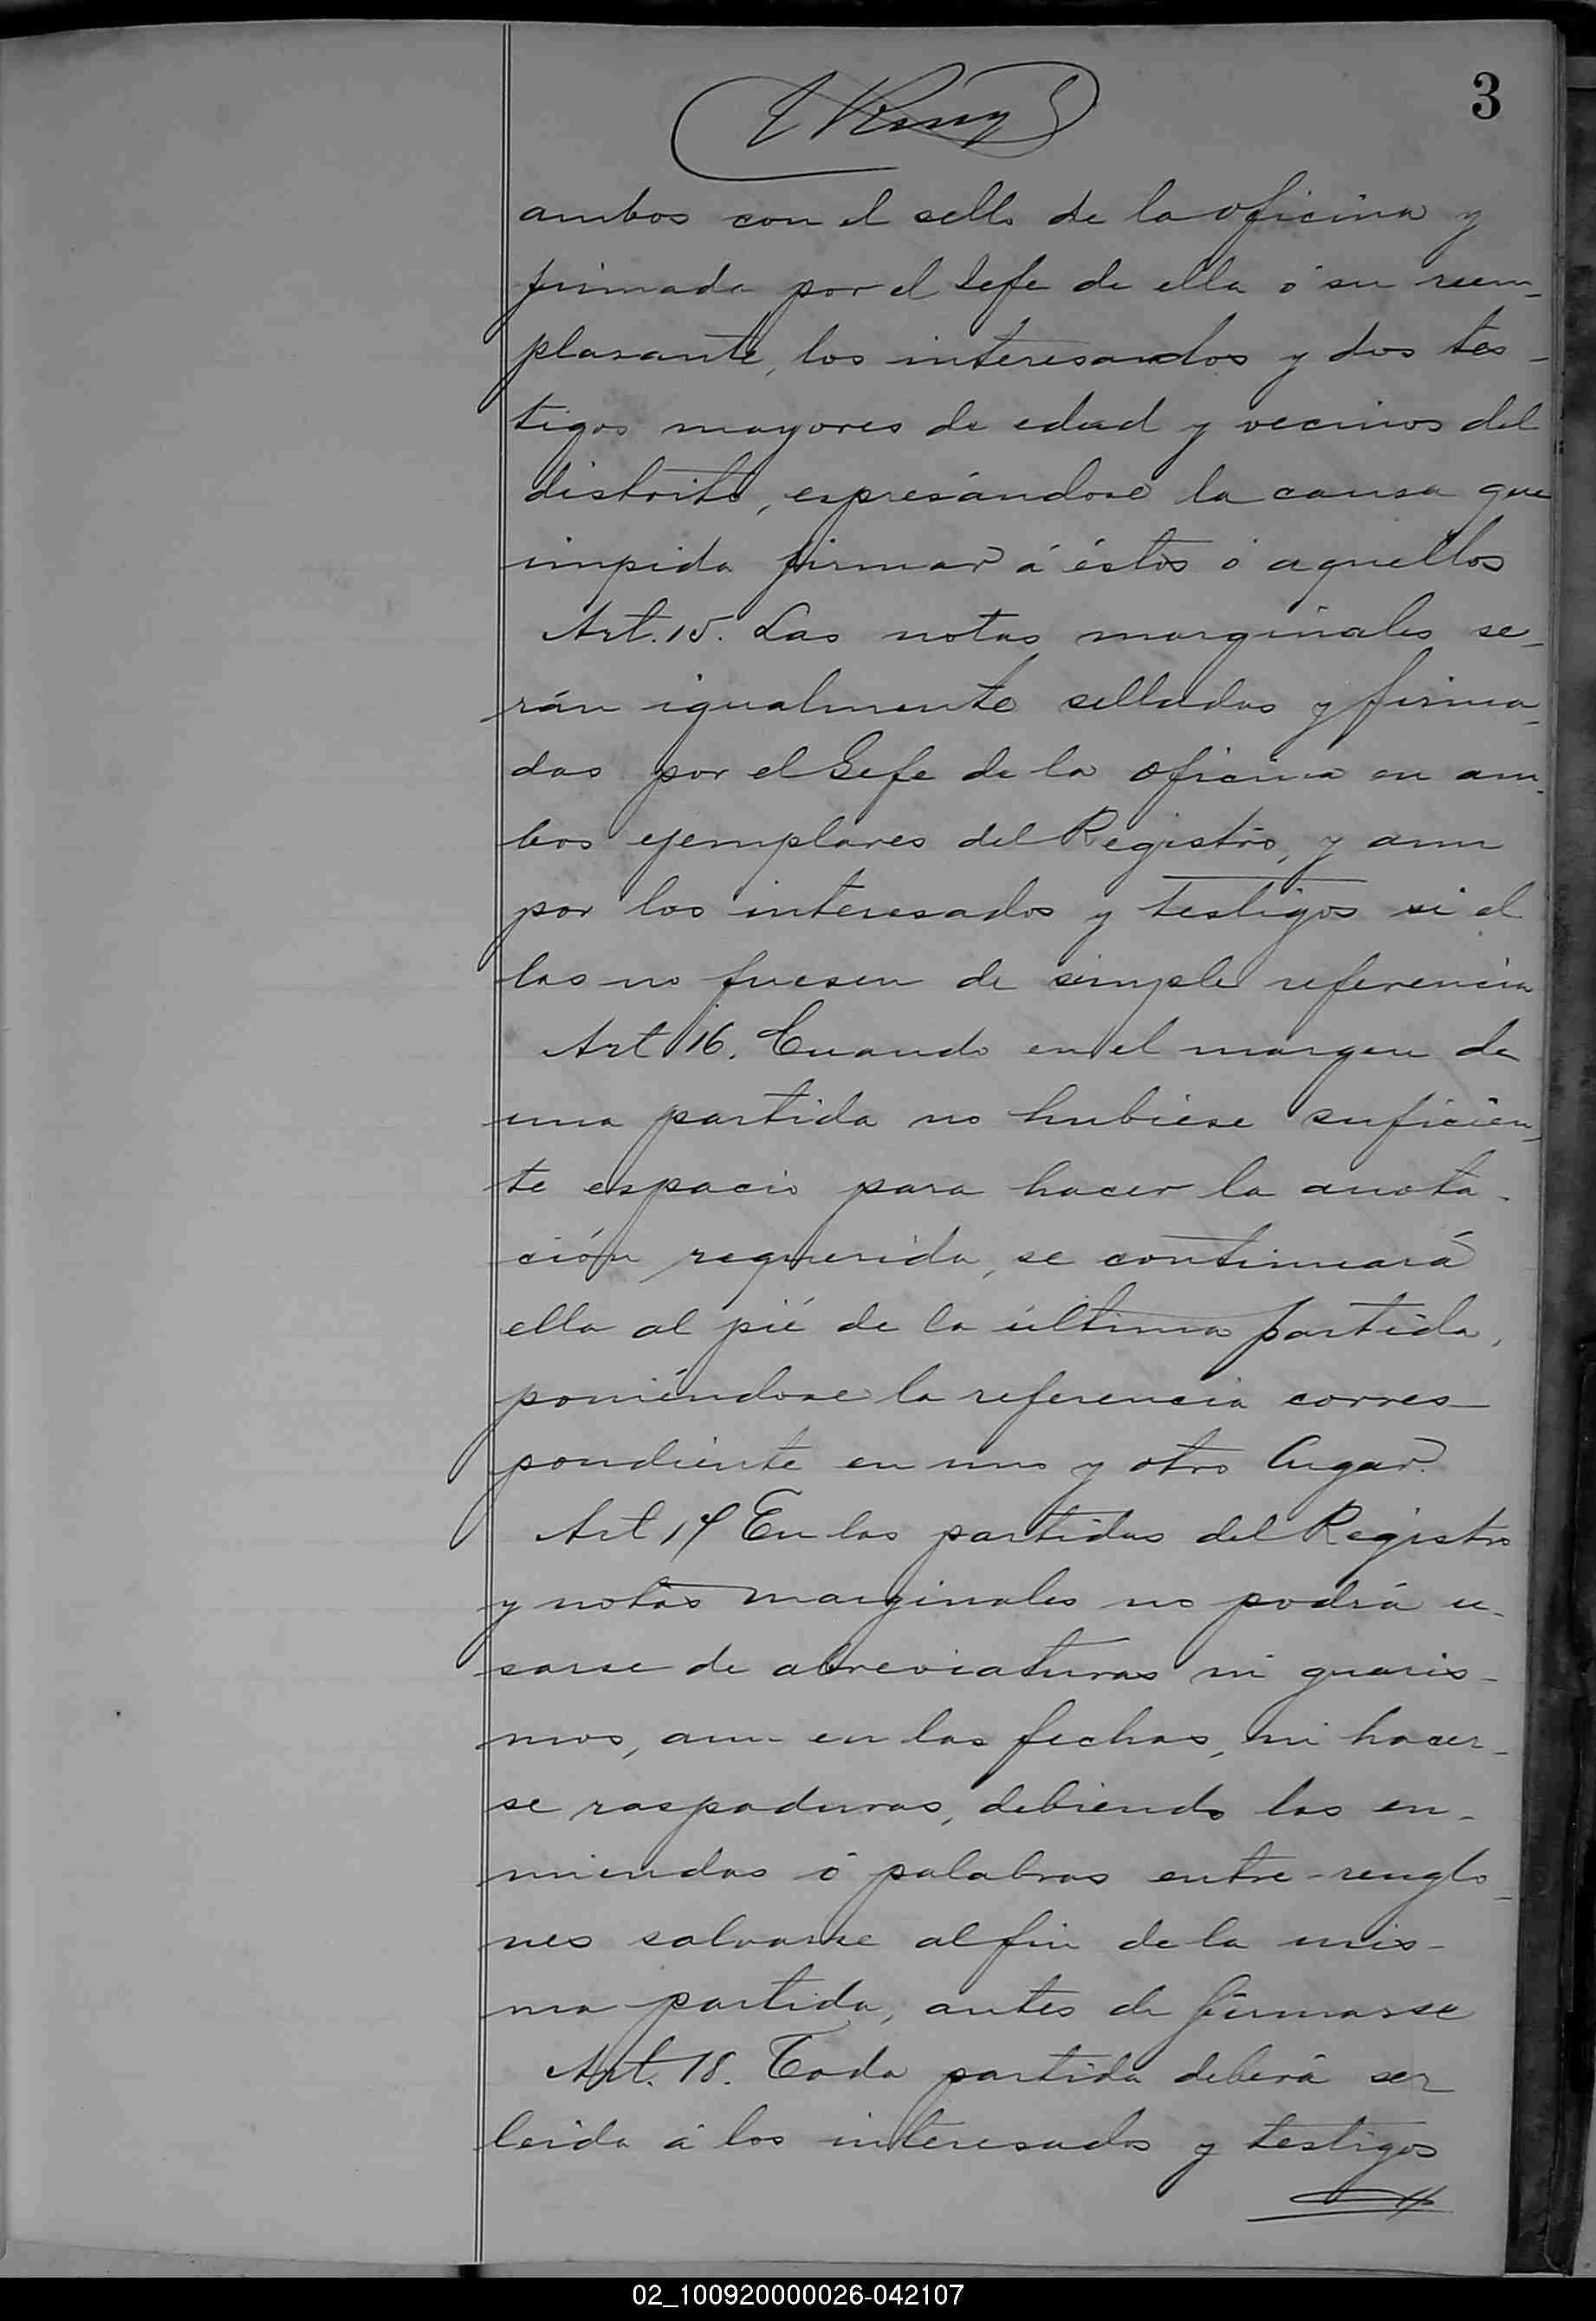 3
ambos con el sello de la oficina y
firmada por el Gefe de ella ó su reem-
plasante, los interesandos y dos tes-
tigos mayores de edad y vecinos del
distrito, espresándose la causa que
impida firmar á éstos ó aquellos
Art. 15. Las notas marginales se-
rán igualmente selladas y firma-
das por el Gefe de la oficina en am-
bos ejemplares del Registro, y aun
por los interesados y testigos si el
las no fuesen de simple referencia
Art 16. Cuando en el margen de
una partida no hubiese suficien-
te espacio para hacer la anota-
ción requerida, se continuará
ella al pié de la última partida,
poniéndose la referencia corres-
pondiente en uno y otro lugar.
Art 17 En las partidas del Registro
y notas marginales no podrá u-
sarse de abreviaturas ni guaris-
mos, aun en las fechas, ni hacer-
se raspaduras, debiendo las en-
miendas ó palabras entre-renglo-
nes salvarse al fin de la mis-
ma partida, antes de firmarse
Art. 18. Toda partida deberá ser
leida á los interesados y testigos
02_100920000026-042107